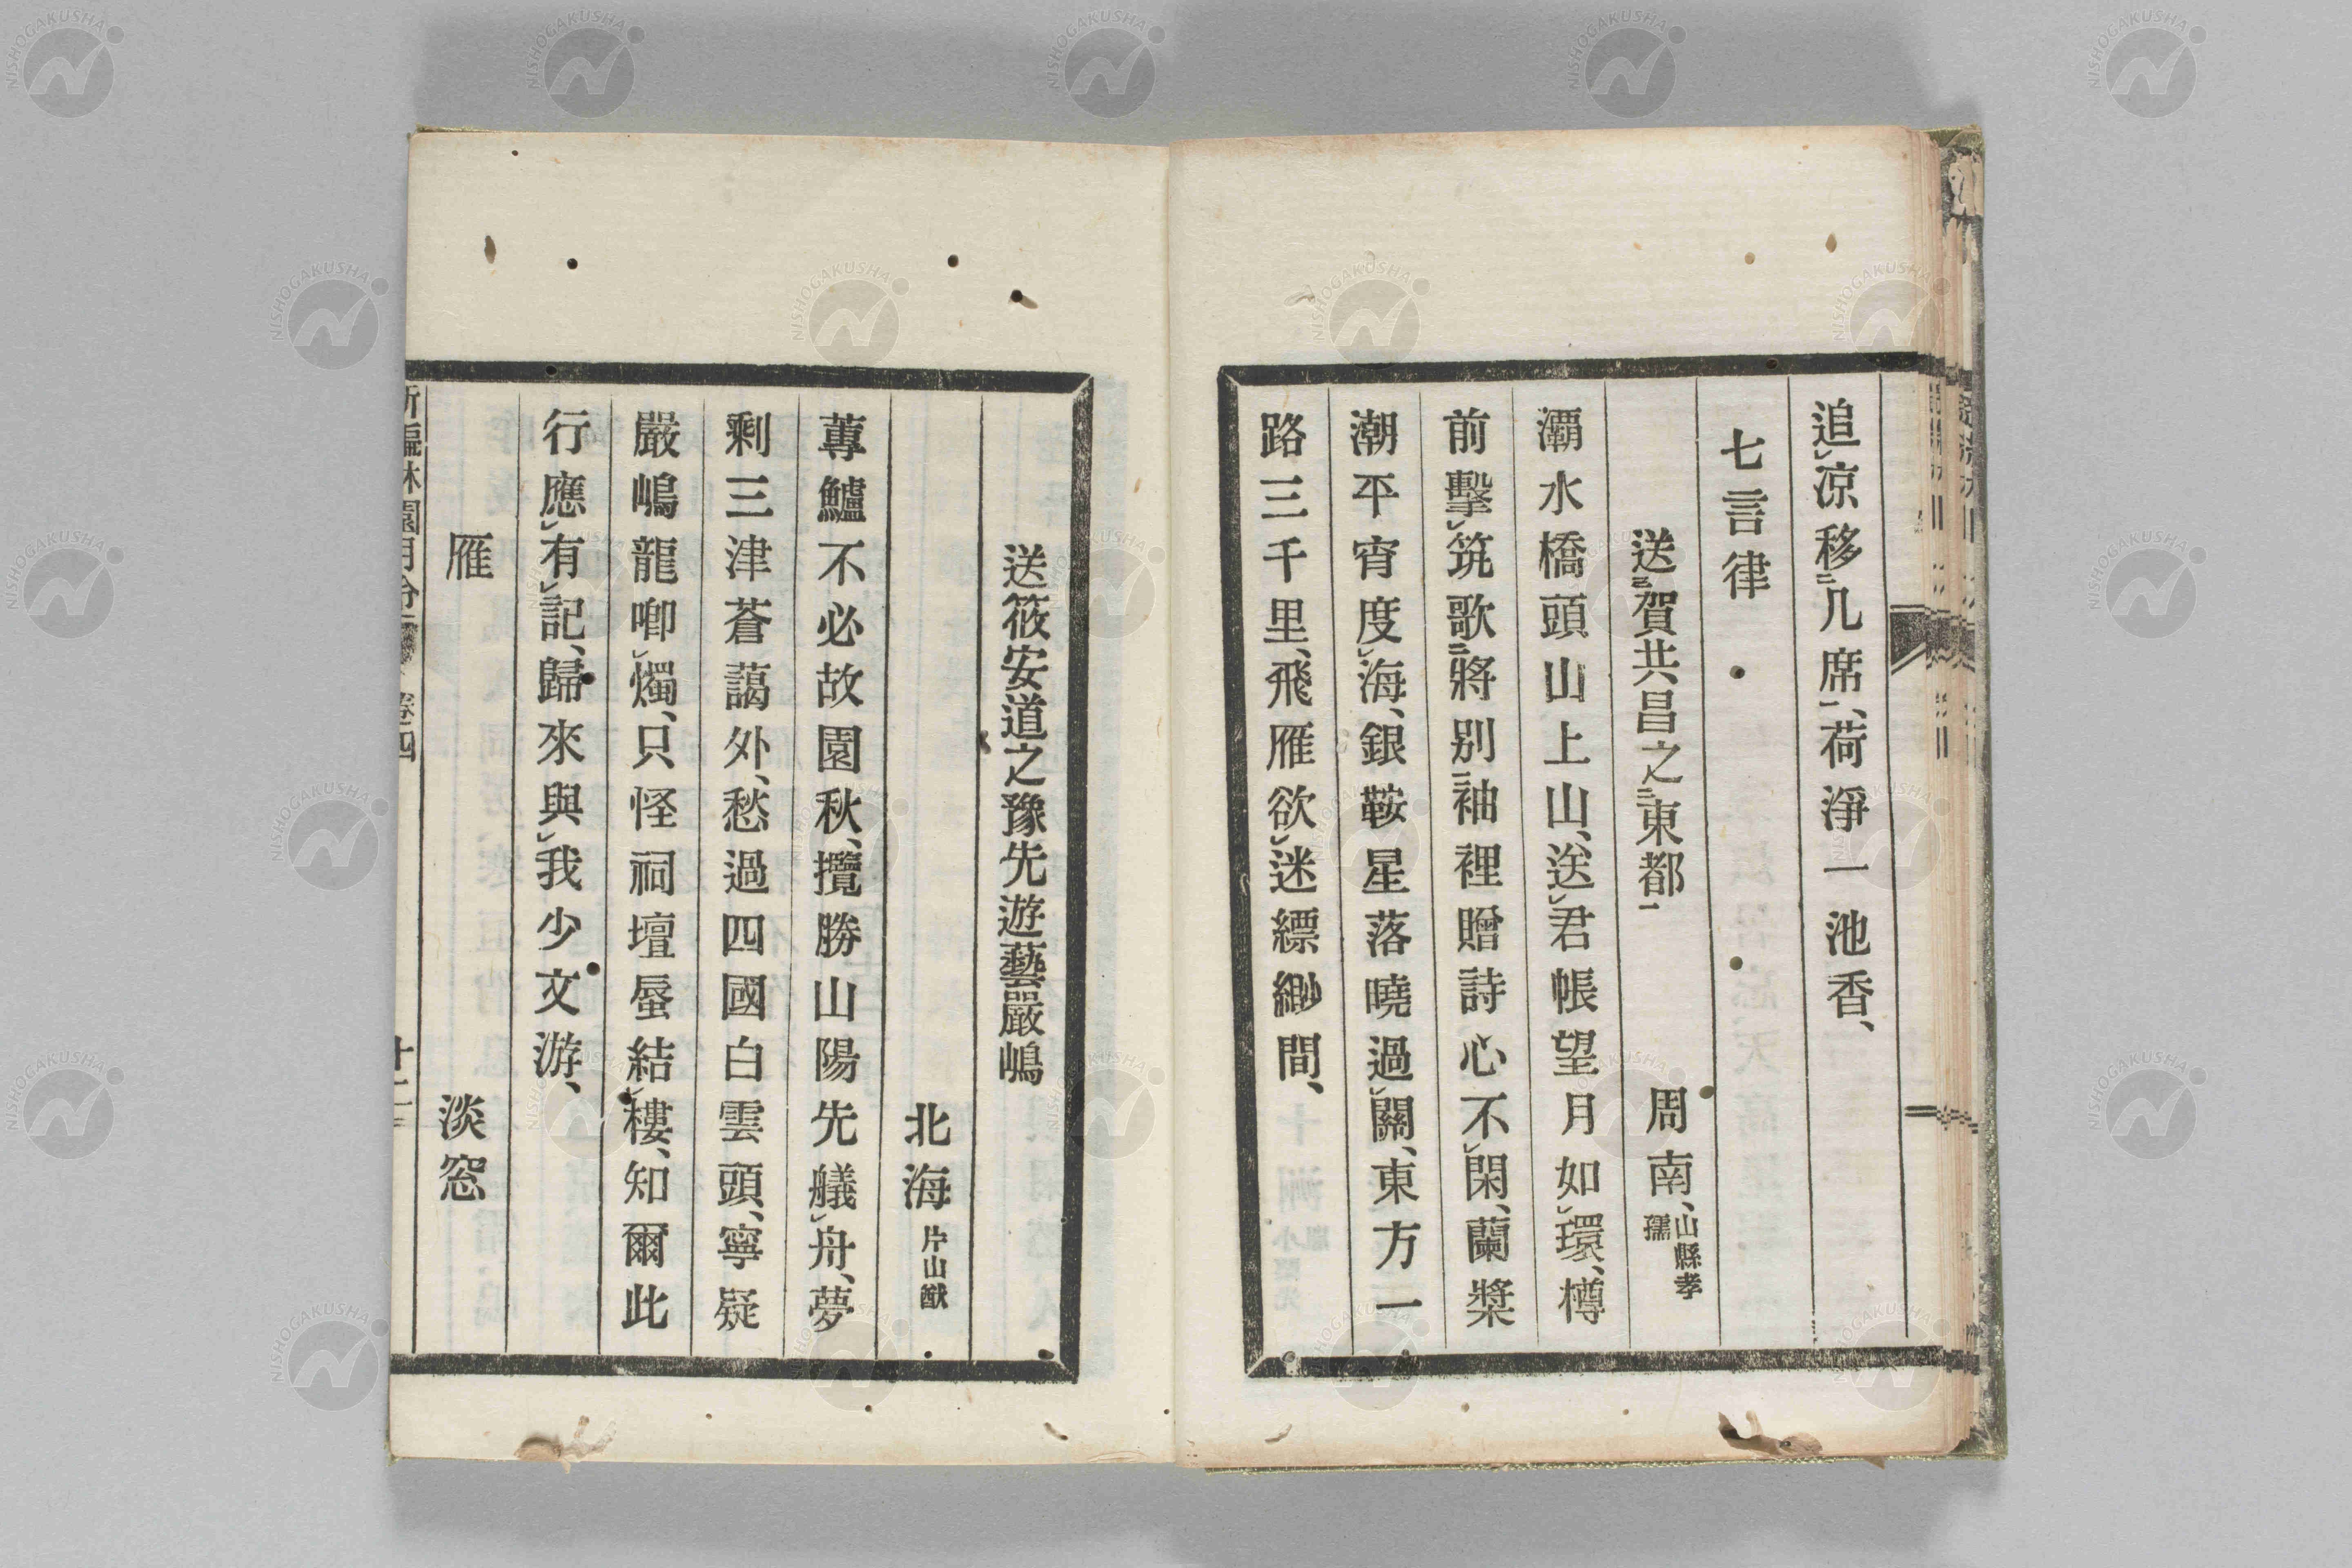 追凉移几席、荷淨一池香、
七言律
送賀共昌之東都 周南、山縣孝孺
灞水橋頭山上山、送君帳望月如環、樽
前擊筑歌將別、袖裡贈詩心不閑、蘭槳
潮平宵度海、銀鞍星落曉過關、東方一
路三千里、飛雁欲迷縹緲間、
送筱安道之豫先遊藝嚴嶋
北海 片山猷
蓴鱸不必故園秋、攬勝山陽先艤舟、夢
剩三津蒼藹外、愁過四國白雲頭、寧疑
嚴嶋龍啣燭、只怪祠壇蜃結樓、知爾此
行應有記、歸來與我少文游、
雁 淡窓
卷四
NISHOGAKUSHA